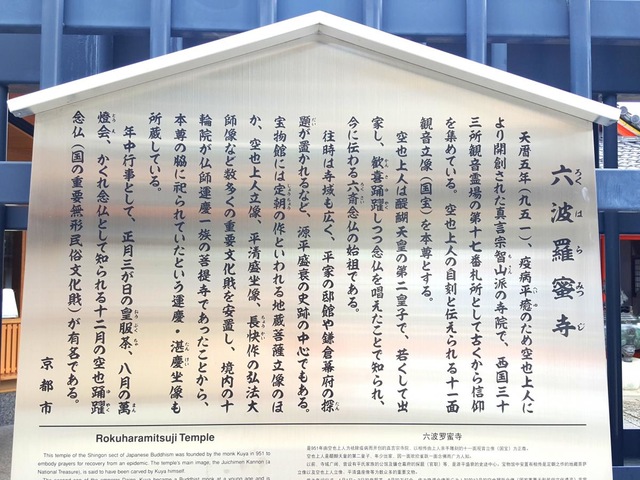 六波羅蜜寺
ろくはらみつじ
天暦五年（九五一）、疫病平癒のため空也上人に
より開創された真言宗智山派の寺院で、西国三十
三所観音霊場の第十七番札所として古くから信仰
を集めている。空也上人の自刻と伝えられる十一面
観音立像（国宝）を本尊とする。
空也上人は醍醐天皇の第二皇子で、若くして出
家し、歓喜踊躍しつつ念仏を唱えたことで知られ、
今に伝わる六斎念仏の始祖である。
往時は寺域も広く、平家の邸館や鎌倉幕府の探
題が置かれるなど、源平盛衰の史跡の中心でもある。
宝物館には定朝の作といわれる地蔵菩薩立像のほ
か、空也上人立像、平清盛坐像、長快作の弘法大
師像など数多くの重要文化財を安置し、境内の十
輪院が仏師運慶一族の菩提寺であったことから、
本尊の脇に祀られていたという運慶・湛慶坐像も
所蔵している。
年中行事として、正月三が日の皇服茶、八月の萬
燈会、かくれ念仏として知られる十二月の空也踊躍
念仏（国の重要無形民俗文化財）が有名である。
京都市
Rokuharamitsuji Temple
This temple of the Shingon sect of Japanese Buddhism was founded by the monk Kuya in 951 to
embody prayers for recovery from an epidemic. The temple's main image, the Juichimen Kannon (a
National Treasure), is said to have been carved by Kuya himself.
The second son of the emperor Daigo, Kuya became a Buddhist monk at a young age and is
六波罗蜜寺